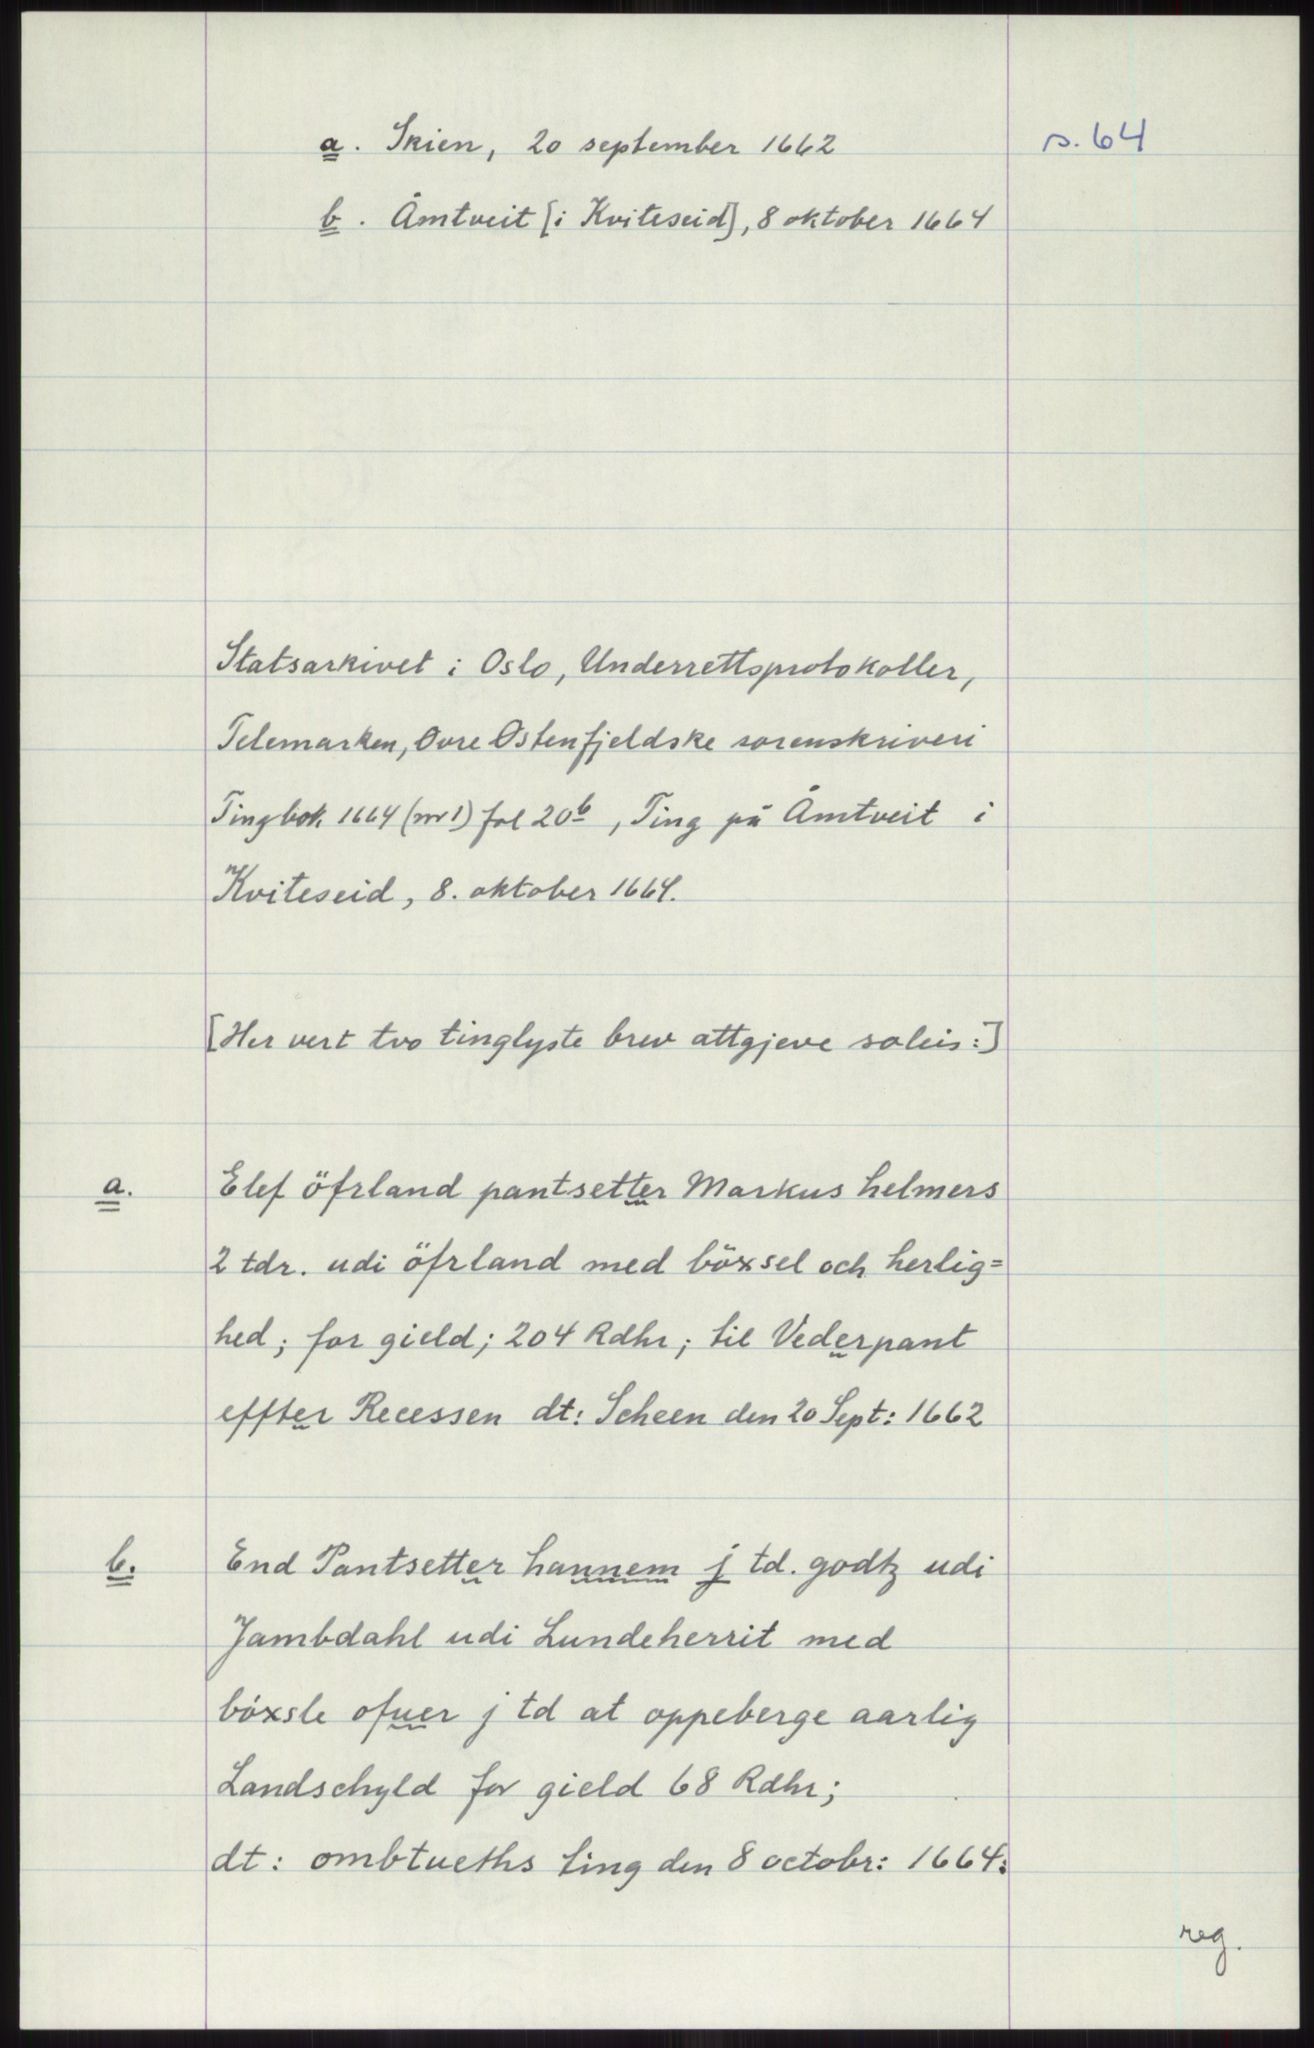 a. Skien, 20 september 1662
s. 64
b. Åmtveit [i Kviteseid], 8 oktober 1664
Statsarkivet i Oslo, Underrettsprotokoller,
Telemarken, Øvre Østenfjeldske sorenskriveri
Tingbok 1664 (nr 1) fol 20b, Ting på Åmtveit i
Kviteseid, 8. oktober 1664.
[Her vert two tinglyste brev attgjeve soleis:]
a. Elef öfrland pantsetter Markus helmers
2 tdr. udi öfrland med böxsel och herlig=
hed; for gield; 204 Rdhr; til Vederpant
effter Recessen dt: Scheen den 20 Sept: 1662
b. End Pantsetter hannem j td. godtz udi
Jambdahl udi Lundeherrit med
böxsle ofuer j td at oppeberge aarlig
Landschyld for gield 68 Rdhr;
dt: ombtueths ting den 8 octobr: 1664:
reg.